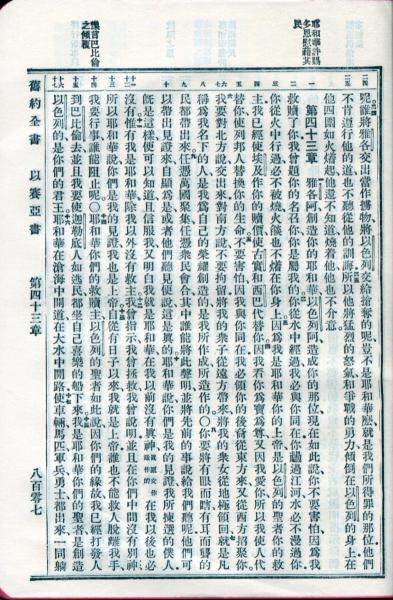 耶和華許賜
多恩慰藉其
民
呢誰將雅各交出當作擄物將以色列交給搶奪的呢豈不是耶和華麼就是我們所得罪的那位他們
不肯遵行他的道也不聽從他的訓誨所以他將猛烈的怒氣和爭戰的勇力傾倒在以色列的身上在
他四圍如火燃起他還不知道燒着他他也不介意
第四十三章 雅各阿創造你的耶和華以色列阿造成你的那位現在如此說你不要害怕因爲我
救贖了你我曾題你的名召你你是屬我的你從水中經過我必與你同在你䠟過江河水必不漫過你
你從火中行過必不被燒火燄也不燔在你身上因爲我是耶和華你的上帝是以色列的聖者你的救
主我已經使埃及作你的贖價使古實和西巴代替你因我看你爲寶爲尊又因我愛你所以我使人代
替你使列邦人替換你的生命不要害怕因我與你同在我必領你的後裔從東方來又從西方招聚你
我要對北方說交出來對南方說不要拘留將我的衆子從遠方帶來將我的衆女從地極領回就是凡
稱爲我名下的人是我爲自己的榮耀創造的是我所作成所造作的〇你要將有眼而瞎有耳而聾的
民都帶出來任憑萬國聚集任憑衆民會合其中誰能將此聲明並將先前的事說給我們聽呢他們可
以帶出見證來自顯爲是或者他們聽見便說這是眞的耶和華說你們是我的見證我所揀選的僕人
旣是這樣便可以知道且信服我又明白我就是耶和華在我以前沒有眞神在我以後也必
沒有惟有我是耶和華除我以外沒有救主我曾指示我曾拯救我曾說明並且在你們中間沒有別神
所以耶和華說你們是我的見證我也是上帝自從有日子以來我就是上帝誰也不能救人脫離我手
我要行事誰能阻止呢〇耶和華你們的救贖主以色列的聖者如此說因你們的緣故我已經打發人
到巴比倫去並且我要使迦勒底人如逃民都坐自己喜樂的船下來我是耶和華你們的聖者是創造
以色列的是你們的君王耶和華在滄海中開道在大水中開路使車輛馬匹軍兵勇士都出來一同躺
讖言巴比倫
之傾覆
舊約全書 以賽亞書 第四十三章 八百零七